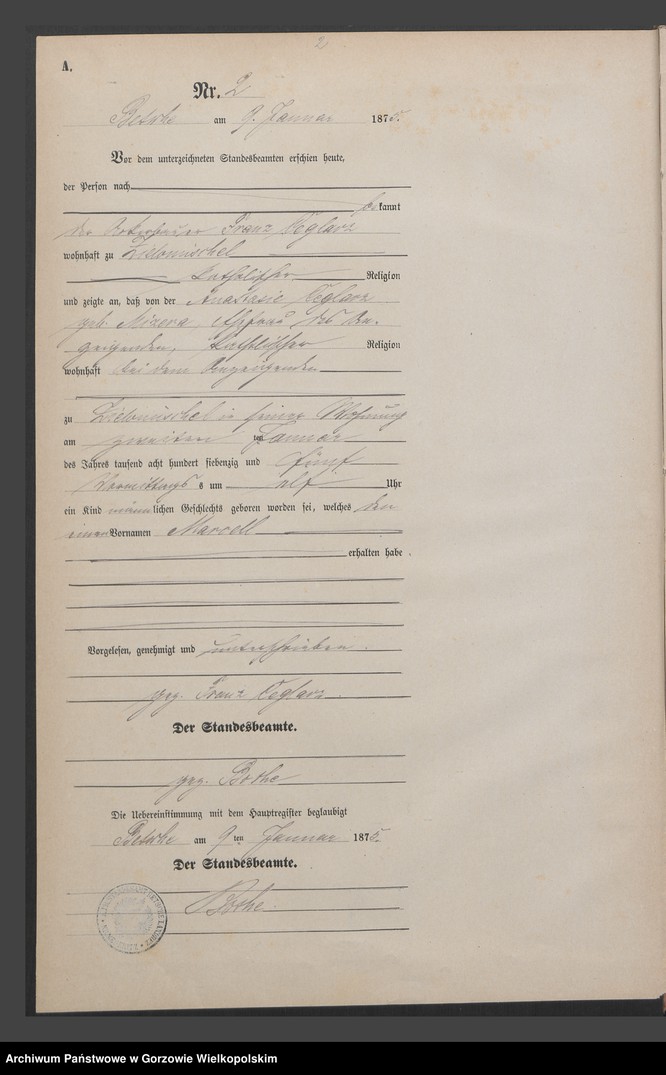 2
A.
Nr. 2
Betsche am 9. Januar 1875.
Vor dem unterzeichneten Standesbeamten erschien heute,
der Person nach
bekannt
der Franz Ceglarz
wohnhaft zu
katholischer Religion
und zeigte an, daß von der Anastasie Ceglarz
geb. Mizera, Ehefrau des An-
zeigenden, katholischer Religion
wohnhaft bei dem Anzeigenden
zu in seiner Wohnung
am zweiten ten Januar
des Jahres tausend acht hundert siebenzig und fünf
Vormittags s um elf Uhr
ein Kind männlichen Geschlechts geboren worden sei, welches den
einen Vornamen Marcell
erhalten habe.
Vorgelesen, genehmigt und unterschrieben.
gez. Franz Ceglarz.
Der Standesbeamte.
gez. Bothe
Die Uebereinstimmung mit dem Hauptregister beglaubigt
Betsche am 9 ten Januar 1875.
Der Standesbeamte.
Bothe
Archiwum Państwowe w Gorzowie Wielkopolskim